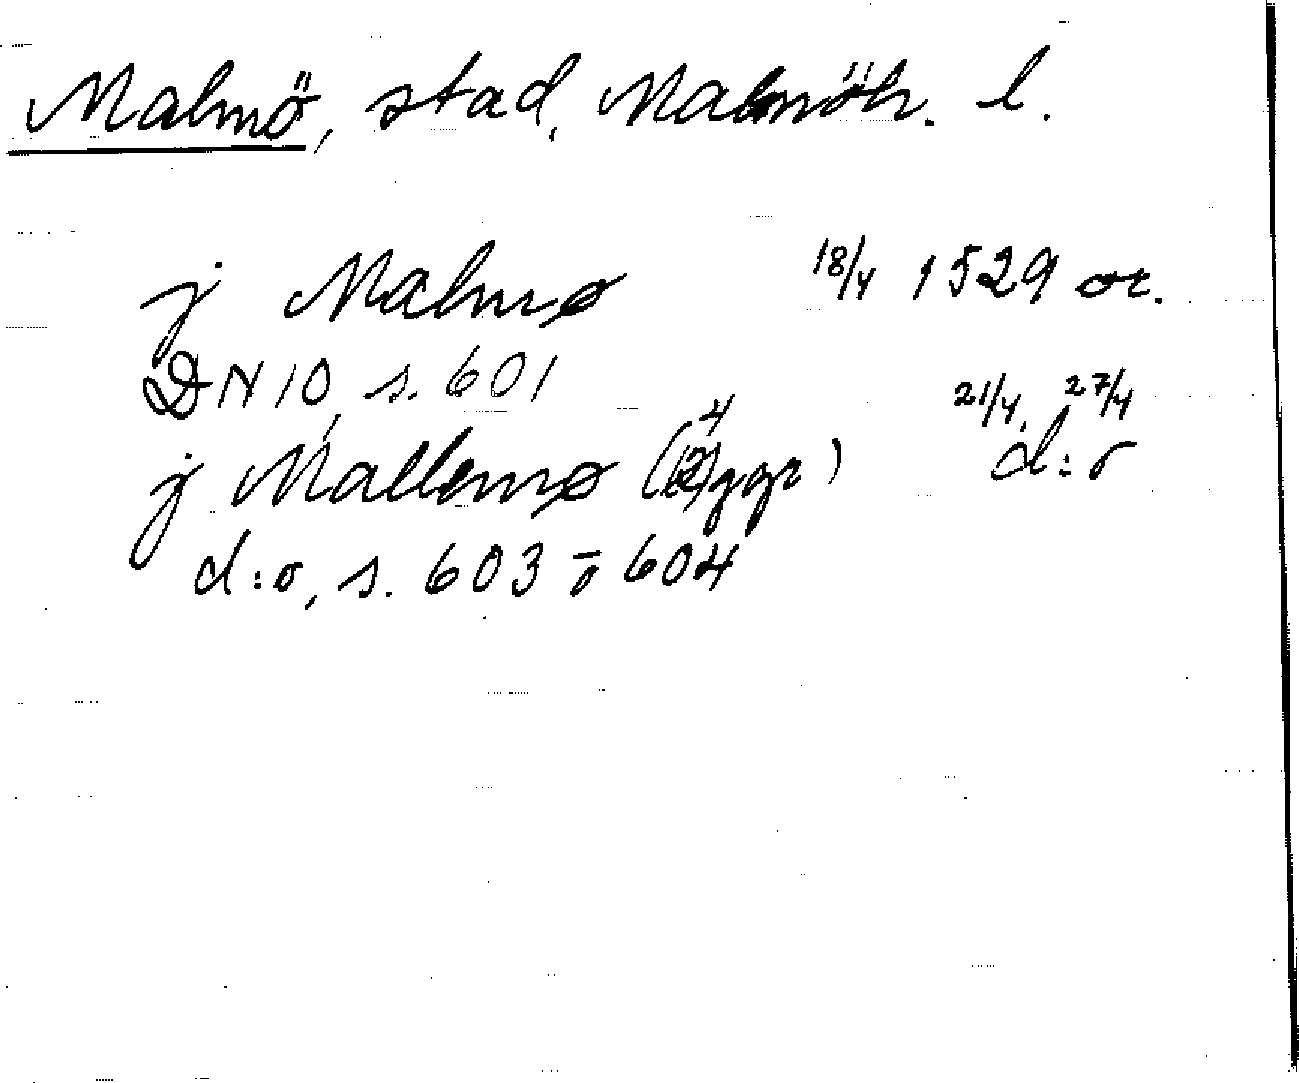 Malmö, stad, Malmöh. l.
j Malmø 18/4 1529 or.
DN 10, s. 601
j Mallemø (4 ggr) 21/4, 27/4 d:o
d:o, s. 603 o 604